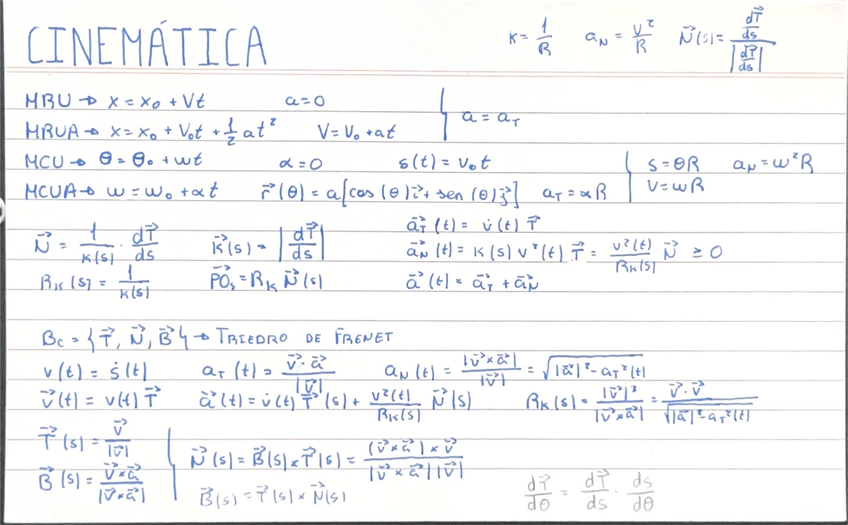 CINEMÁTICA
K = 1/R   a_N = v²/R   N⃗(s) = (dT⃗/ds) / |dT⃗/ds|
MRU → x = x₀ + Vt   a = 0
MRUA → x = x₀ + V₀t + 1/2 at²   V = V₀ + at   a = a_T
MCU → θ = θ₀ + ωt   α = 0   s(t) = v₀t   s = θR   a_N = ω²R
MCUA → ω = ω₀ + αt   r⃗(θ) = a[cos(θ)i⃗ + sen(θ)j⃗]   a_T = αR   V = ωR
N⃗ = 1/K(s) · dT⃗/ds   K⃗(s) = |dT⃗/ds|   a⃗_T(t) = v̇(t) T⃗
a⃗_N(t) = K(s) v²(t) T⃗ = v²(t)/R_K(s) N⃗ ≥ 0
R_K(s) = 1/K(s)   PO⃗_s = R_K N⃗(s)   a⃗(t) = a⃗_T + a⃗_N
B_c = {T⃗, N⃗, B⃗} → TRIEDRO DE FRENET
v(t) = ṡ(t)   a_T(t) = v⃗·a⃗/|v⃗|   a_N(t) = |v⃗×a⃗|/|v⃗| = √(|a⃗|² - a_T²(t))
v⃗(t) = v(t) T⃗   a⃗(t) = v̇(t) T⃗(s) + v²(t)/R_K(s) N⃗(s)   R_K(s) = |v⃗|³/|v⃗×a⃗| = v⃗·v⃗/√(|a⃗|² - a_T²(t))
T⃗(s) = v⃗/|v⃗|
N⃗(s) = B⃗(s) × T⃗(s) = (v⃗×a⃗)×v⃗ / |v⃗×a⃗||v⃗|
B⃗(s) = v⃗×a⃗/|v⃗×a⃗|   B⃗(s) = T⃗(s) × N⃗(s)   dT⃗/dθ = dT⃗/ds · ds/dθ